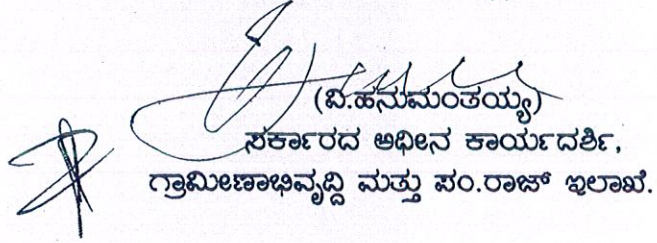 (ವಿ.ಹನುಮಂತಯ್ಯ)
ಸರ್ಕಾರದ ಅಧೀನ ಕಾರ್ಯದರ್ಶಿ,
ಗ್ರಾಮೀಣಾಭಿವೃದ್ಧಿ ಮತ್ತು ಪಂ.ರಾಜ್ ಇಲಾಖೆ.